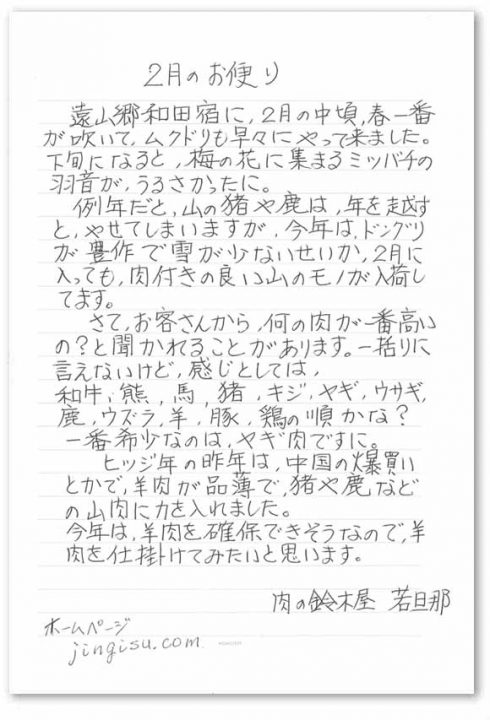 2月のお便り
遠山郷和田宿に，2月の中頃，春一番
が吹いて，ムクドリも早々にやって来ました。
下旬になると，梅の花に集まるミツバチの
羽音が，うるさかったに。
例年だと，山の猪や鹿は，年を越す
と，やせてしまいますが，今年は，ドングリ
が豊作で雪が少ないせいか，2月に
入っても，肉付きの良い山のモノが入荷し
てます。
さて，お客さんから，何の肉が一番高い
の？と聞かれることがあります。一括りに
言えないけど，感じとしては，
和牛，熊，馬，猪，キジ，ヤギ，ウサギ，
鹿，ウズラ，羊，豚，鶏の順かな？
一番希少なのは，ヤギ肉ですに。
ヒツジ年の昨年は，中国の爆買い
とかで，羊肉が品薄で，猪や鹿など
の山肉に力を入れました。
今年は，羊肉を確保できそうなので，羊
肉を仕掛けてみたいと思います。
肉の鈴木屋 若旦那
ホームページ
jingisu.com